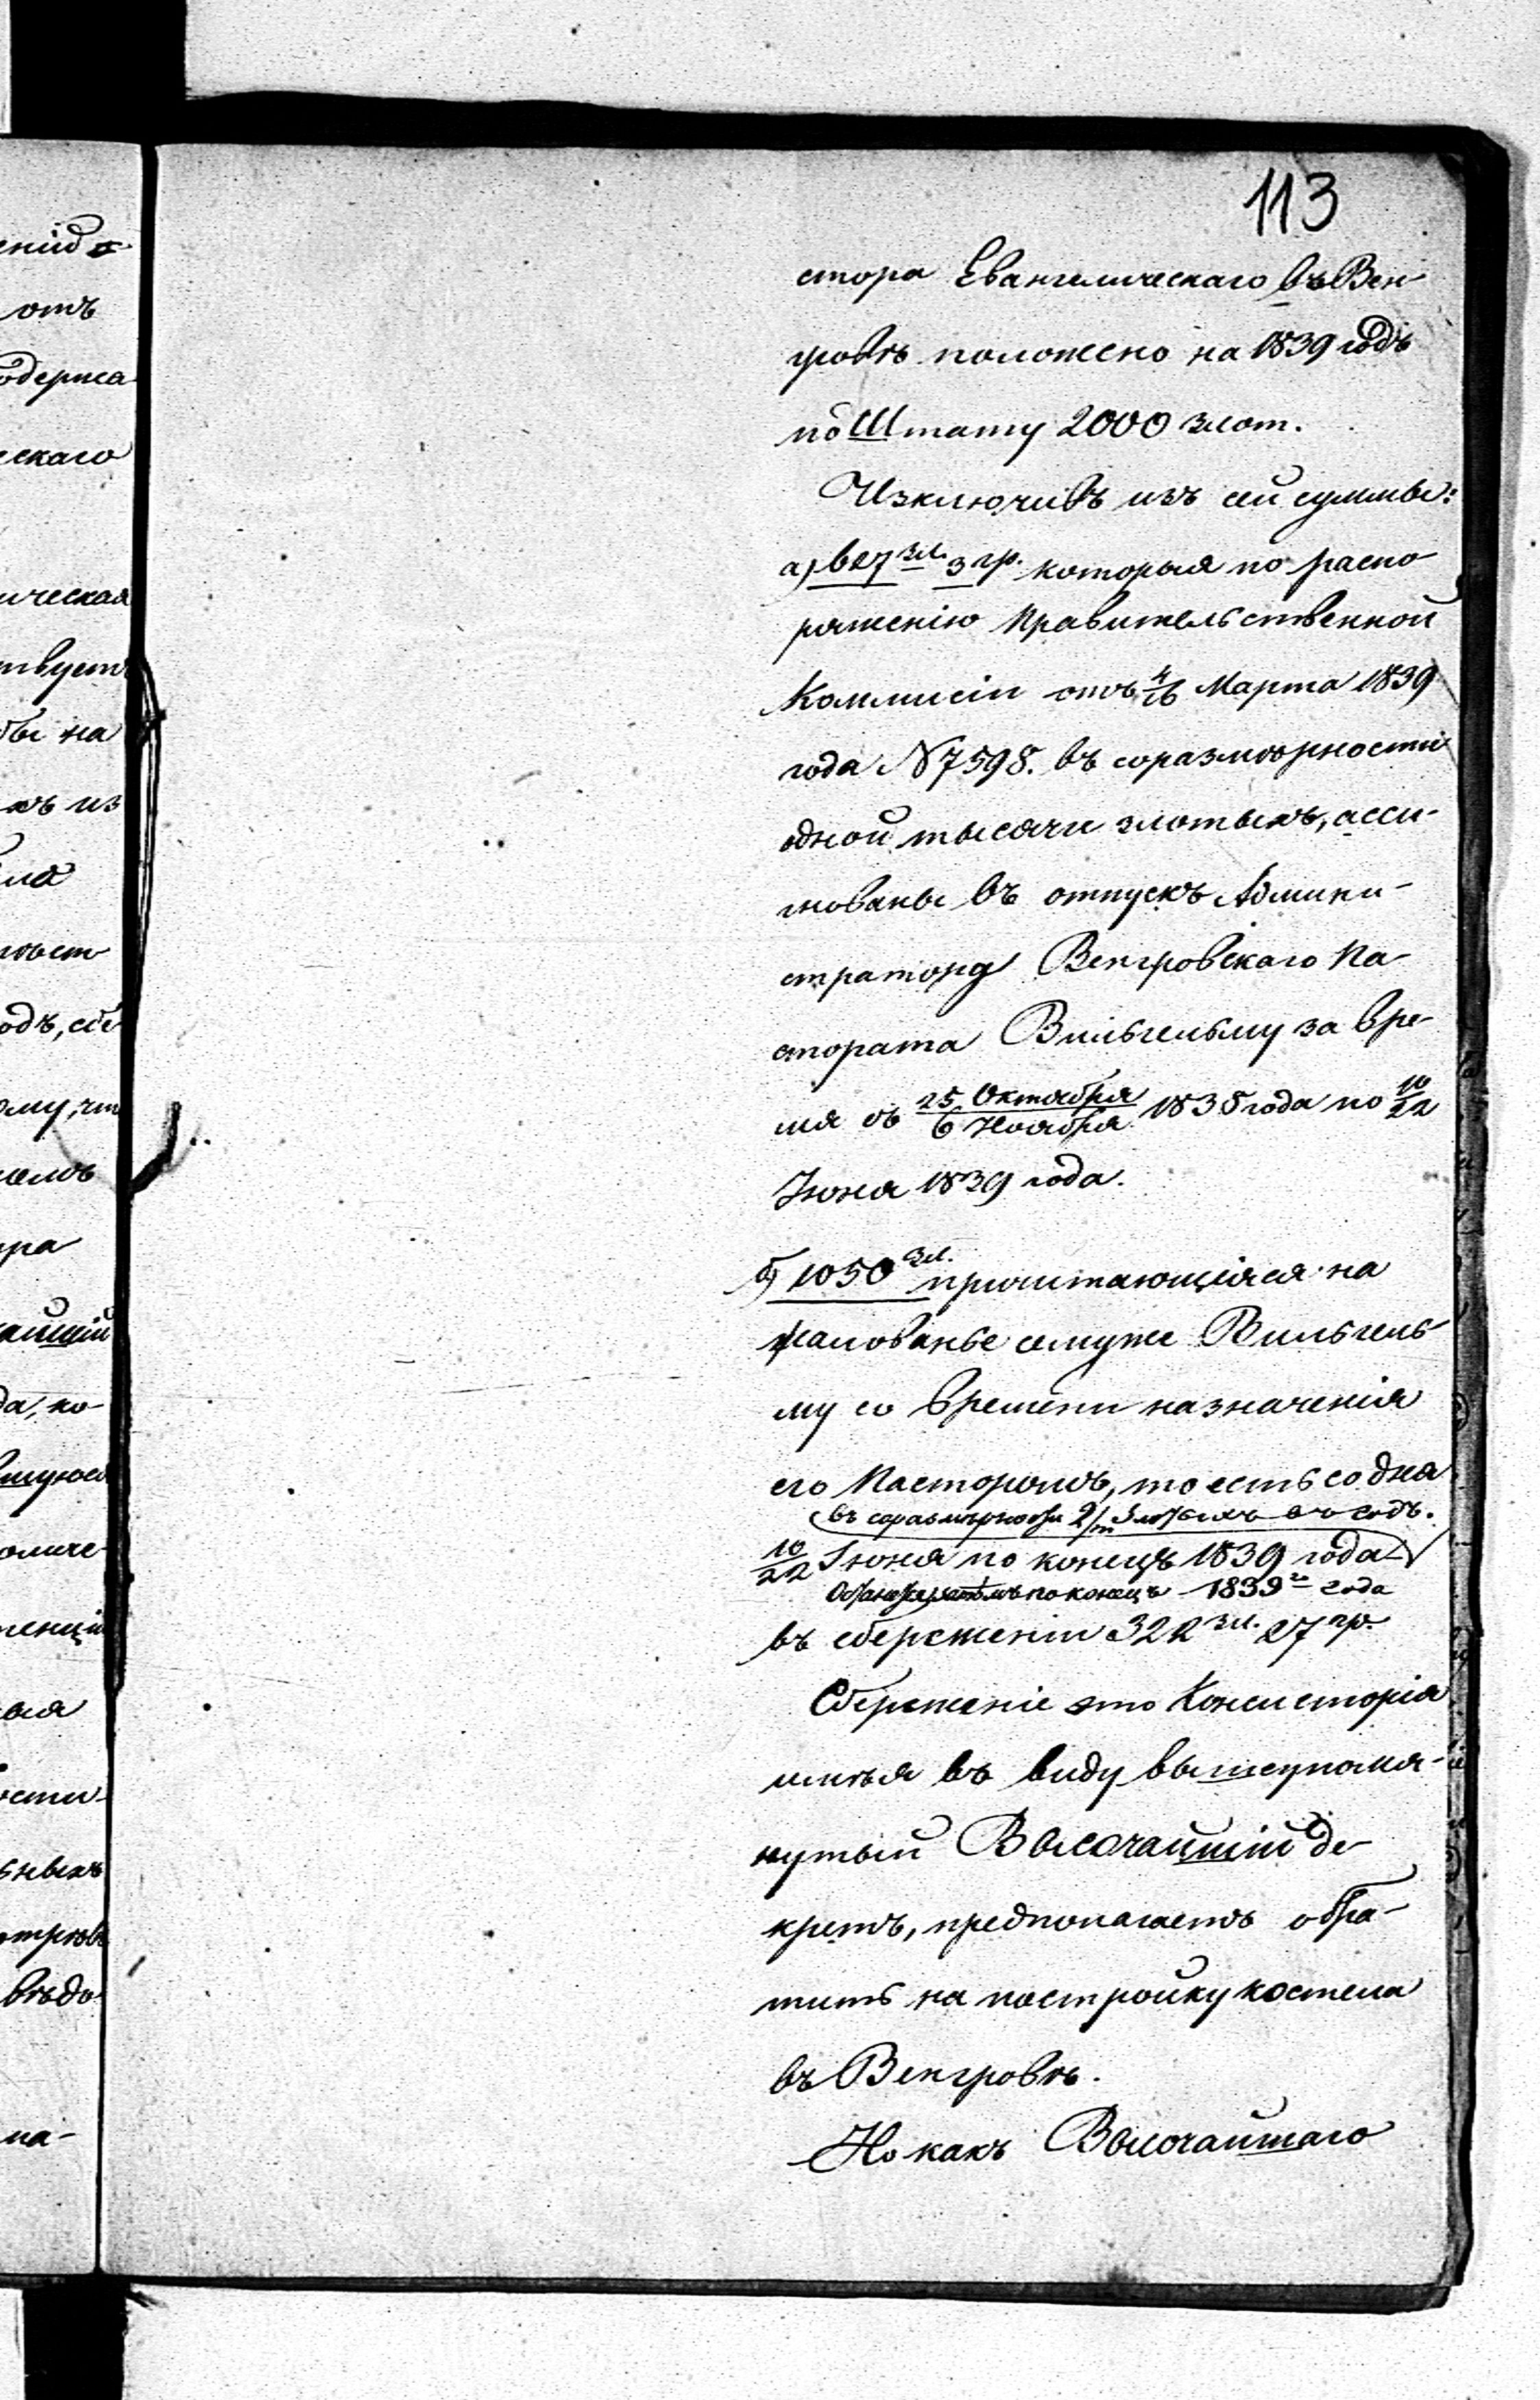 113
стора Евангелическаго въ Вен-
гровѣ положено на 1839 годъ
по Штату 2000 злот.
Изключивъ изъ сей суммы:
а) 627 зл. 3 гр. которыя по распо-
ряженію Правительственной
Коммисіи отъ 4/16 Марта 1839
года N 7598. въ соразмѣрности
одной тысячи злотыхъ, асси-
гнованы въ отпускъ Админи-
стратору Венгровскаго Па-
стората Вильгельму за вре-
мя съ 25 Октября/6 Ноября 1838 года по 10/22
Іюня 1839 года.
б) 1050 зл. причитающіяся на
жалованье семуже Вильгель-
му со времени назначенія
его Пасторомъ, то есть со дня
въ соразмѣрности 2/m злотыхъ въ годъ.
10/22 Іюня по конецъ 1839 года
по конецъ 1839 го года
въ сбереженіи 322 зл. 27 гр.
Сбереженіе это Консисторія
имѣя въ виду вышеупомя-
нутый Высочайшій де-
кретъ, предполагаетъ обра-
тить на постройку костела
въ Венгровѣ.
Но какъ Высочайшаго
отъ
одержа
скаго
ическая
твует
бы на
хъ из
ома
одъ, сбе
ому, чт
ра
айшій
да, ко-
оличе-
тенцій
ости-
ьныхъ
вѣдо
на-